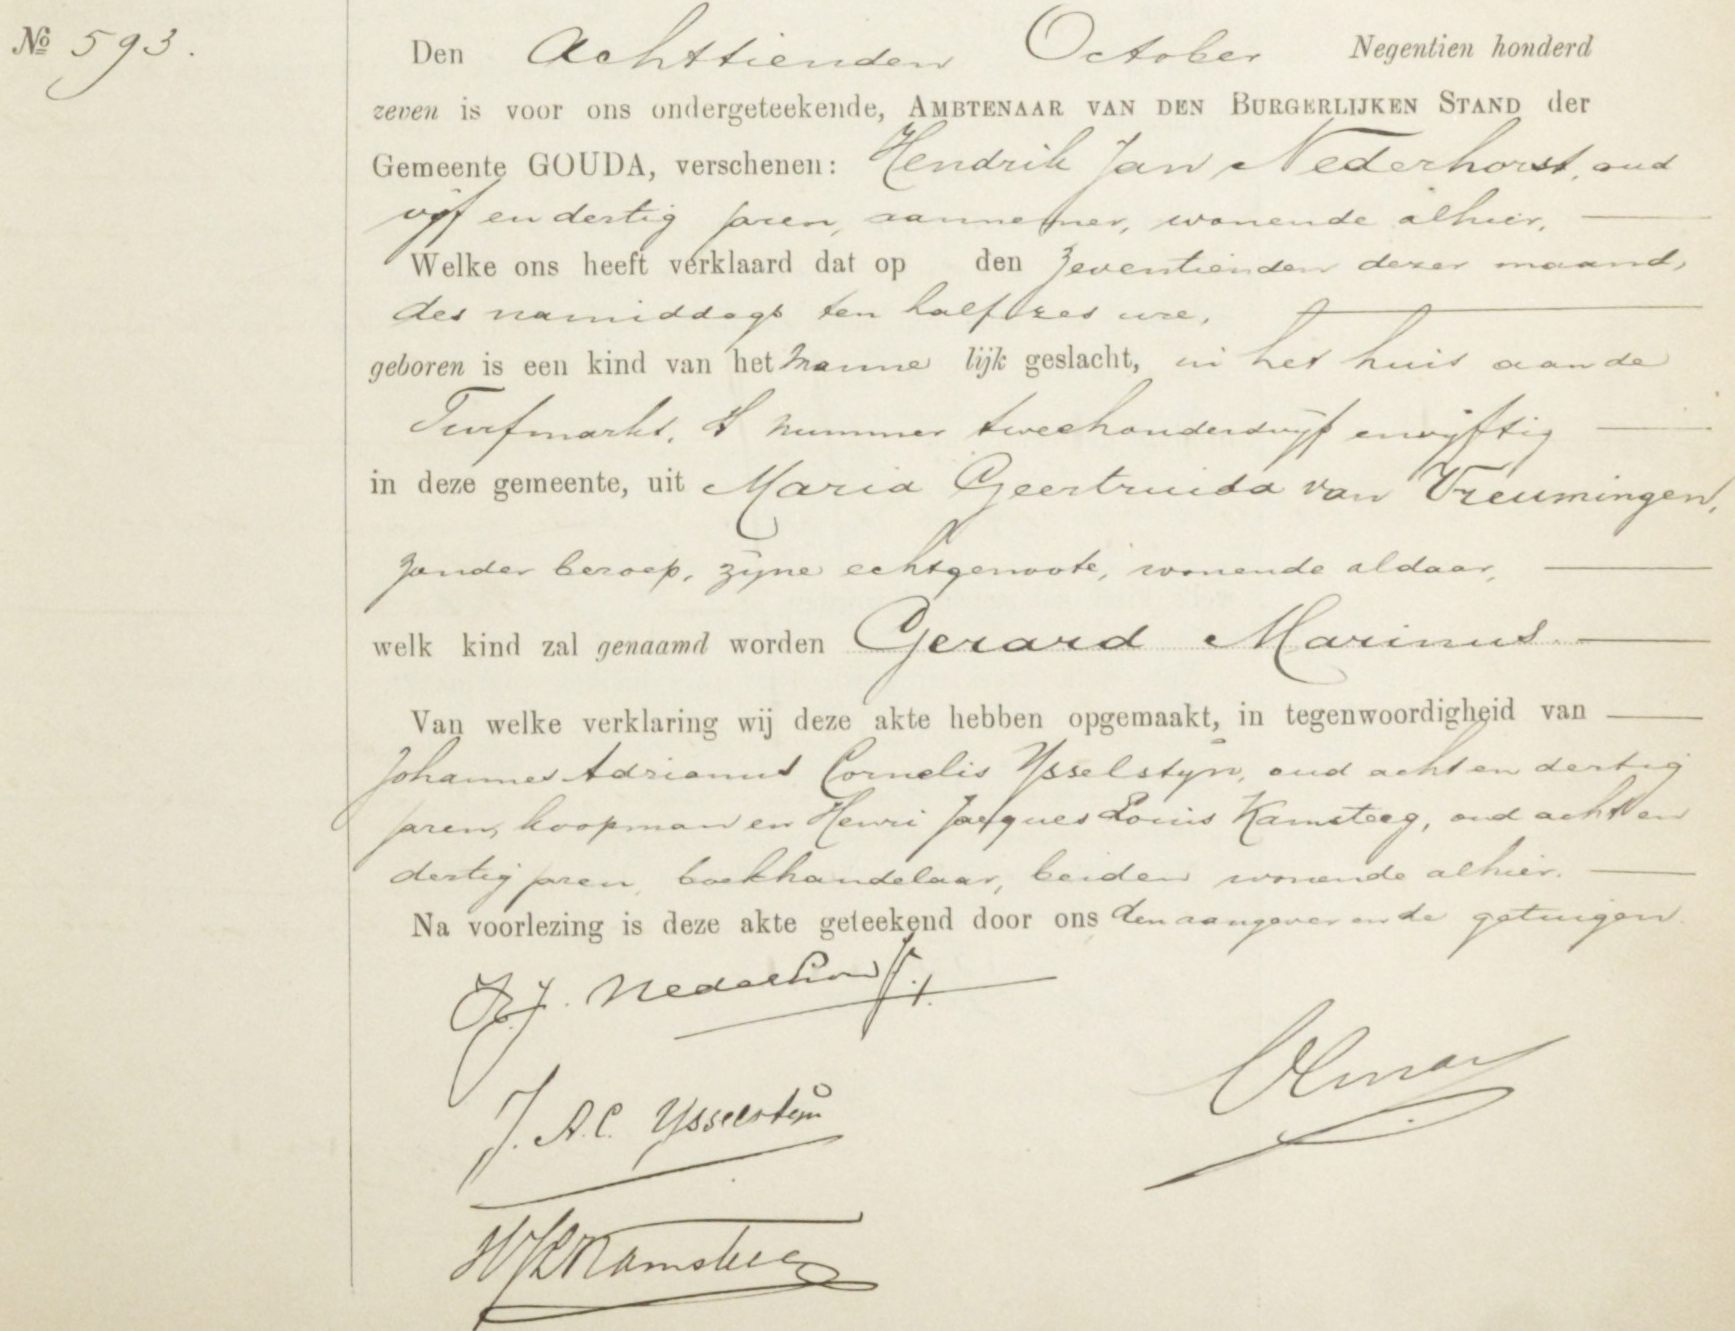 № 593.
Den Achttienden October Negentien honderd
zeven is voor ons ondergeteekende, AMBTENAAR VAN DEN BURGERLIJKEN STAND der
Gemeente GOUDA, verschenen: Hendrik Jan Nederhorst, oud
vijf en dertig jaren, aannemer, wonende alhier,
Welke ons heeft verklaard dat op den zeventienden dezer maand,
des namiddags ten half zes ure,
geboren is een kind van het manne lijk geslacht, in het huis aan de
Turfmarkt, nummer tweehonderdvijf envijftig
in deze gemeente, uit Maria Geertruida van Vreumingen,
zonder beroep, zijne echtgenoote, wonende aldaar,
welk kind zal genaamd worden Gerard Marinus
Van welke verklaring wij deze akte hebben opgemaakt, in tegenwoordigheid van
Johannes Adrianus Cornelis IJsselstijn, oud acht en dertig
jaren, koopman en Henri Jacques Louis Kamsteeg, oud acht en
dertig jaren, boekhandelaar, beiden wonende alhier.
Na voorlezing is deze akte geteekend door ons den aangever en de getuigen
H.J. Nederhorst
J. A.C. IJsselsteijn
HJLKamsteeg